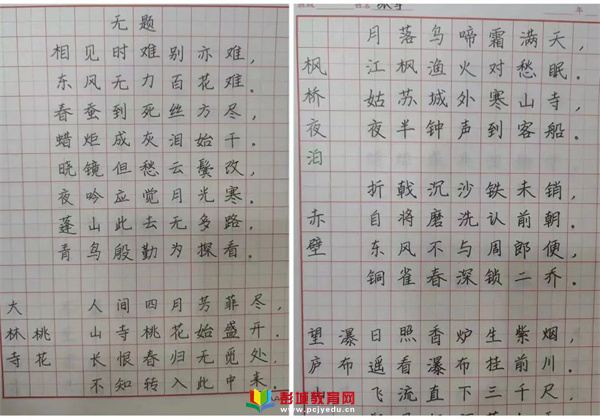 无题
相见时难别亦难，
东风无力百花难．
春蚕到死丝方尽，
蜡炬成灰泪始干．
晓镜但愁云鬓改，
夜吟应觉月光寒．
蓬山此去无多路，
青鸟殷勤为探看．
大林寺桃花
人间四月芳菲尽，
山寺桃花始盛开．
长恨春归无觅处，
不知转入此中来．
年
枫桥夜泊
月落乌啼霜满天，
江枫渔火对愁眠．
姑苏城外寒山寺，
夜半钟声到客船．
赤壁
折戟沉沙铁未销，
自将磨洗认前朝．
东风不与周郎便，
铜雀春深锁二乔．
望庐山瀑布
日照香炉生紫烟，
遥看瀑布挂前川．
飞流直下三千尺，
彭城教育网
www.pcjyedu.cn